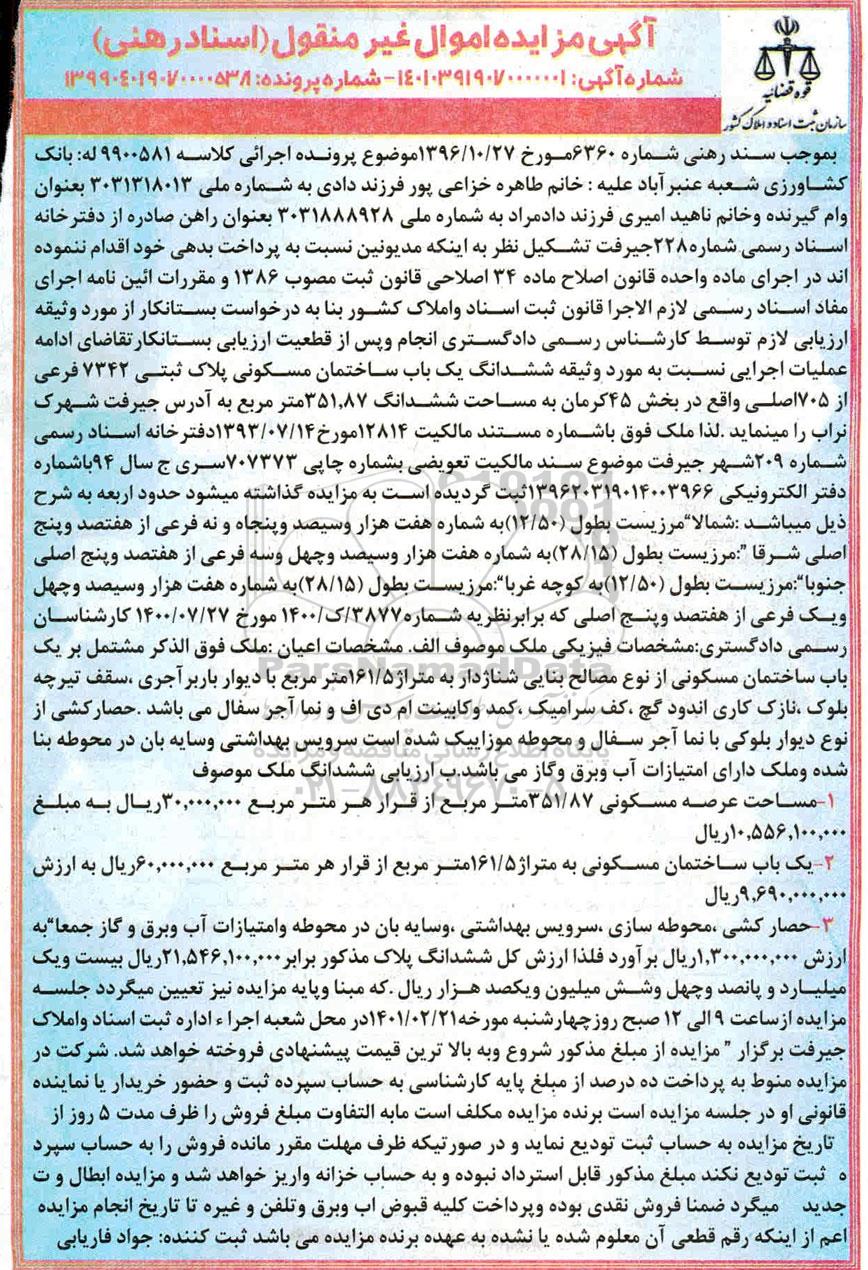 آگهی مزایده اموال غیر منقول (اسناد رهنی)
شماره آگهی: ۱۴۰۱۰۳۹۱۹۰۷۰۰۰۰۰۰۱ - شماره پرونده: ۱۳۹۹۰۴۰۱۹۰۷۰۰۰۰۵۳۸
قوه قضائیه
سازمان ثبت اسناد و املاک کشور
بموجب سند رهنی شماره ۶۳۶۰مورخ ۱۳۹۶/۱۰/۲۷موضوع پرونده اجرائی کلاسه ۹۹۰۰۵۸۱ له: بانک
کشاورزی شعبه عنبرآباد علیه : خانم طاهره خزاعی پور فرزند دادی به شماره ملی ۳۰۳۱۳۱۸۰۱۳ بعنوان
وام گیرنده وخانم ناهید امیری فرزند دادمراد به شماره ملی ۳۰۳۱۸۸۸۹۲۸ بعنوان راهن صادره از دفترخانه
اسناد رسمی شماره۲۲۸جیرفت تشکیل نظر به اینکه مدیونین نسبت به پرداخت بدهی خود اقدام ننموده
اند در اجرای ماده واحده قانون اصلاح ماده ۳۴ اصلاحی قانون ثبت مصوب ۱۳۸۶ و مقررات ائین نامه اجرای
مفاد اسناد رسمی لازم الاجرا قانون ثبت اسناد واملاک کشور بنا به درخواست بستانکار از مورد وثیقه
ارزیابی لازم توسط کارشناس رسمی دادگستری انجام وپس از قطعیت ارزیابی بستانکارتقاضای ادامه
عملیات اجرایی نسبت به مورد وثیقه ششدانگ یک باب ساختمان مسکونی پلاک ثبتی ۷۳۴۲ فرعی
از ۷۰۵اصلی واقع در بخش ۴۵کرمان به مساحت ششدانگ ۳۵۱,۸۷متر مربع به آدرس جیرفت شهرک
نراب را مینماید .لذا ملک فوق باشماره مستند مالکیت ۱۲۸۱۴مورخ۱۳۹۳/۰۷/۱۴دفترخانه اسناد رسمی
شماره ۲۰۹شهر جیرفت موضوع سند مالکیت تعویضی بشماره چاپی ۷۰۷۳۷۳سری ج سال ۹۴باشماره
دفتر الکترونیکی ۱۳۹۶۲۰۳۱۹۰۱۴۰۰۳۹۶۶ثبت گردیده است به مزایده گذاشته میشود حدود اربعه به شرح
ذیل میباشد :شمالا“مرزیست بطول (۱۲/۵۰)به شماره هفت هزار وسیصد وپنجاه و نه فرعی از هفتصد وپنج
اصلی شرقا “:مرزیست بطول (۲۸/۱۵)به شماره هفت هزار وسیصد وچهل وسه فرعی از هفتصد وپنج اصلی
جنوبا“:مرزیست بطول (۱۲/۵۰)به کوچه غربا“:مرزیست بطول (۲۸/۱۵)به شماره هفت هزار وسیصد وچهل
ویک فرعی از هفتصد وپنج اصلی که برابرنظریه شماره۳۸۷۷/ک/۱۴۰۰ مورخ ۱۴۰۰/۰۷/۲۷ کارشناسان
رسمی دادگستری:مشخصات فیزیکی ملک موصوف الف. مشخصات اعیان :ملک فوق الذکر مشتمل بر یک
باب ساختمان مسکونی از نوع مصالح بنایی شناژدار به متراژ۱۶۱/۵متر مربع با دیوار باربرآجری ،سقف تیرچه
بلوک ،نازک کاری اندود گچ ،کف سرامیک ،کمد وکابینت ام دی اف و نما آجر سفال می باشد .حصارکشی از
نوع دیوار بلوکی با نما آجر سفال و محوطه موزاییک شده است سرویس بهداشتی وسایه بان در محوطه بنا
شده وملک دارای امتیازات آب وبرق وگاز می باشد.ب ارزیابی ششدانگ ملک موصوف
۱-مساحت عرصه مسکونی ۳۵۱/۸۷متر مربع از قرار هر متر مربع ۳۰,۰۰۰,۰۰۰ریال به مبلغ
۱۰,۵۵۶,۱۰۰,۰۰۰ریال
۲-یک باب ساختمان مسکونی به متراژ۱۶۱/۵متر مربع از قرار هر متر مربع ۶۰,۰۰۰,۰۰۰ریال به ارزش
۹,۶۹۰,۰۰۰,۰۰۰ریال
۳-حصار کشی ،محوطه سازی ،سرویس بهداشتی ،وسایه بان در محوطه وامتیازات آب وبرق و گاز جمعا“به
ارزش ۱,۳۰۰,۰۰۰,۰۰۰ریال برآورد فلذا ارزش کل ششدانگ پلاک مذکور برابر۲۱,۵۴۶,۱۰۰,۰۰۰ریال بیست ویک
میلیارد و پانصد وچهل وشش میلیون ویکصد هزار ریال .که مبنا وپایه مزایده نیز تعیین میگردد جلسه
مزایده ازساعت ۹الی ۱۲ صبح روزچهارشنبه مورخه۱۴۰۱/۰۲/۲۱در محل شعبه اجراء اداره ثبت اسناد واملاک
جیرفت برگزار ” مزایده از مبلغ مذکور شروع وبه بالا ترین قیمت پیشنهادی فروخته خواهد شد. شرکت در
مزایده منوط به پرداخت ده درصد از مبلغ پایه کارشناسی به حساب سپرده ثبت و حضور خریدار یا نماینده
قانونی او در جلسه مزایده است برنده مزایده مکلف است مابه التفاوت مبلغ فروش را ظرف مدت ۵ روز از
تاریخ مزایده به حساب ثبت تودیع نماید و در صورتیکه ظرف مهلت مقرر مانده فروش را به حساب سپرد
ه ثبت تودیع نکند مبلغ مذکور قابل استرداد نبوده و به حساب خزانه واریز خواهد شد و مزایده ابطال و ت
جدید میگرد ضمنا فروش نقدی بوده وپرداخت کلیه قبوض اب وبرق وتلفن و غیره تا تاریخ انجام مزایده
اعم از اینکه رقم قطعی آن معلوم شده یا نشده به عهده برنده مزایده می باشد ثبت کننده: جواد فاریابی
ParsNamadData
پایگاه اطلاع رسانی مناقصه و مزایده
۰۲۱-۸۸۳۴۹۶۷۰-۵